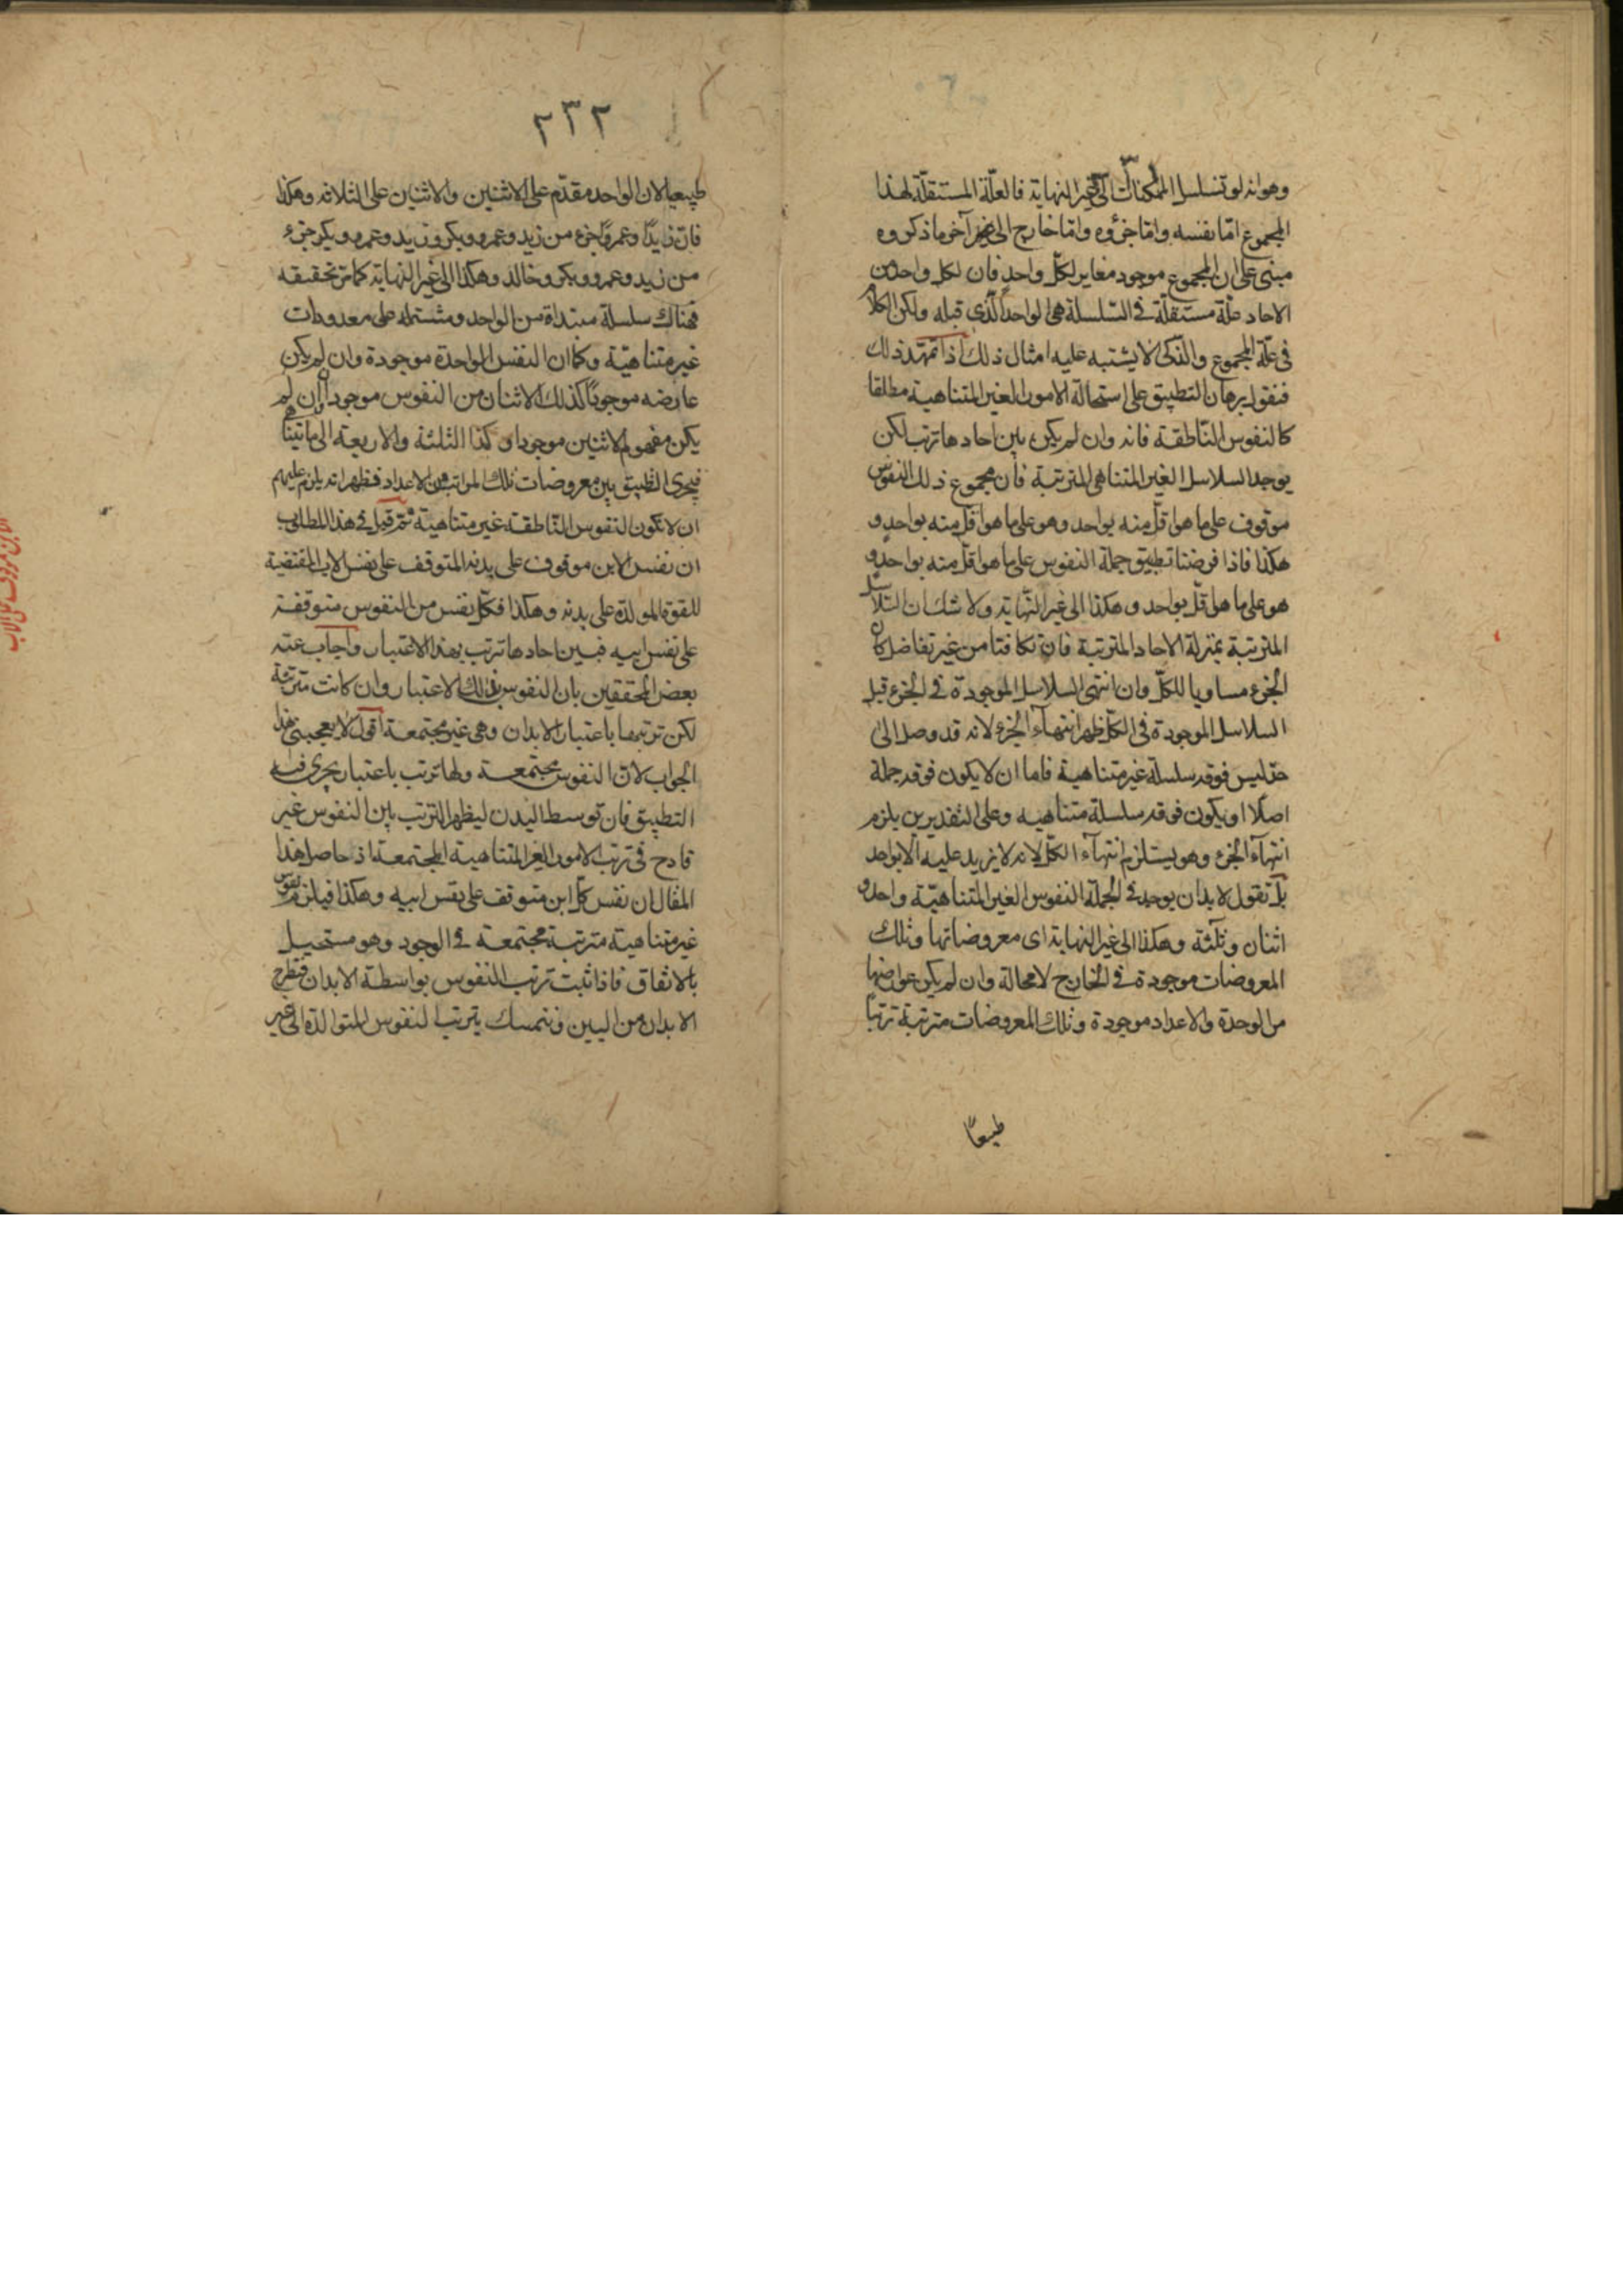 وهو انه لو تسلسل الممكنات الى غير النهاية فالعلّة المستقلّة لهذا
المجموع امّا نفسه وامّا جزؤه وامّا خارج الى آخر ما ذكروه
مبنى على ان المجموع موجود مغاير لكلّ واحد فان لكل واحد من
الاحاد علّة مستقلّة فى السّلسلة هى الواحد الّذى قبله ولكن الكلام
فى علّة المجموع والذكى لا يشتبه عليه امثال ذلك اذا تمهّد ذلك
فنقول برهان التطبيق على استحالة الامور الغير المتناهية مطلقا
كالنفوس النّاطقة فانه وان لم يكن بين احادها ترتب لكن
يوجد السلاسل الغير المتناهى المترتبة فان مجموع ذلك النفوس
موقوف على ما هو اقلّ منه بواحد وهو على ما هو اقلّ منه بواحد و
هكذا فاذا فرضنا تطبيق جملة النفوس على ما هو اقلّ منه بواحد و
هو على ما هو اقلّ بواحد وهكذا الى غير النّهاية ولا شك ان السّلاسل
المترتبة بمنزلة الاحاد المترتبة فان تكافتا من غير تفاضل كان
الجزء مساويا للكلّ وان انتهى السلاسل الموجودة فى الجزء قبل
السلاسل الموجودة فى الكلّ ظهر انتهاء الجزء لانه قد وصل الى
حدّ ليس فوقه سلسلة غير متناهية فاما ان لا يكون فوقه جملة
اصلا او يكون فوقه سلسلة متناهيه وعلى التقديرين يلزم
انتهآء الجزء وهو يستلزم انتهآء الكلّ لانه لا يزيد عليه الّا بواحد
بل نقول لا بد ان يوجد فى الجملة النفوس الغير المتناهيّة واحد و
اثنان وثلثة وهكذا الى غير النهاية اى معروضاتها وتلك
المعروضات موجودة فى الخارج لا محالة وان لم يكن عوارضها
من الوحدة والاعداد موجودة وتلك المعروضات مترتبة ترتّبا
طبيعيّا
٢٣٢
طبيعيا لان الواحد مقدّم على الاثنين والاثنين على الثلاثه وهكذا
فان زيدًا وعمروًا جزء من زيد وعمرو وبكر وزيد وعمرو وبكر جزء
من زيد وعمرو وبكر وخالد وهكذا الى غير النهاية كما مرّ تحقيقه
فهناك سلسلة مبتداة من الواحد ومشتمله على معدودات
غير متناهيّة وكما ان النفس الواحدة موجودة وان لم يكن
عارضه موجودًا كذلك الاثنان من النفوس موجود وان لم
يكن مفهوم الاثنين موجودا وكذا الثلثة والاربعة الى ما
فيجرى التطبيق بين معروضات تلك المراتب من الاعداد فظهر انه يلزم عليهم
ان لا تكون النفوس النّاطقة غير متناهية ثمّ قيل فى هذا المطلب
ان نفس الابن موقوف على بدنه المتوقف على نفس الاب المقتضية
للقوة المولدة على بدنه وهكذا فكلّ نفس من النفوس متوقفة
على نفس ابيه فبين احادها ترتب بهذا الاعتبار واجاب عنه
بعض المحققين بان النفوس بذلك الاعتبار وان كانت مترتبة
لكن ترتبها باعتبار الابدان وهى غير مجتمعة اقول لا يعجبنى هذا
الجواب لانّ النفوس مجتمعة ولها ترتب باعتبار يجرى فيه
التطبيق فان توسط البدن ليظهر الترتب بين النفوس غير
قادح فى ترتب الامور الغير المتناهية المجتمعة اذ حاصل هذا
المقال ان نفس كل ابن متوقف على نفس ابيه وهكذا فيلزم نفوس
غير متناهية مترتبة مجتمعة فى الوجود وهو مستحيل
بالاتفاق فاذا ثبت ترتب النفوس بواسطة الابدان فنطرح
الابدان من البين ونتمسك بترتب النفوس المتوالدة الى غير